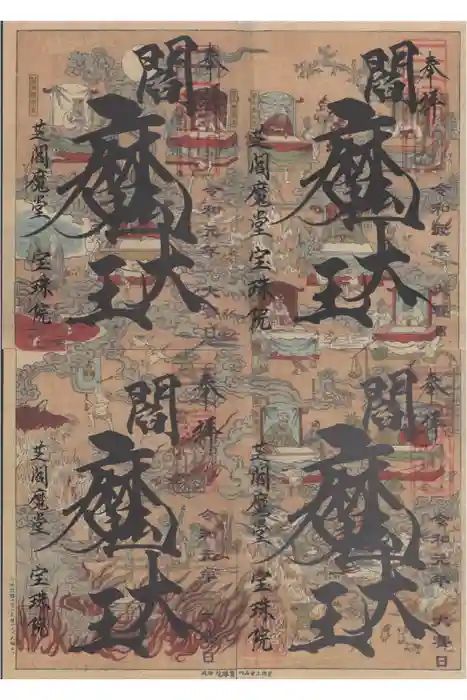 奉拝
令和元年 大晦日
閻魔大王
芝閻魔堂 宝珠院
奉拝
令和元年 大晦日
閻魔大王
芝閻魔堂 宝珠院
奉拝
令和元年 大晦日
閻魔大王
芝閻魔堂 宝珠院
奉拝
令和元年 大晦日
閻魔大王
芝閻魔堂 宝珠院